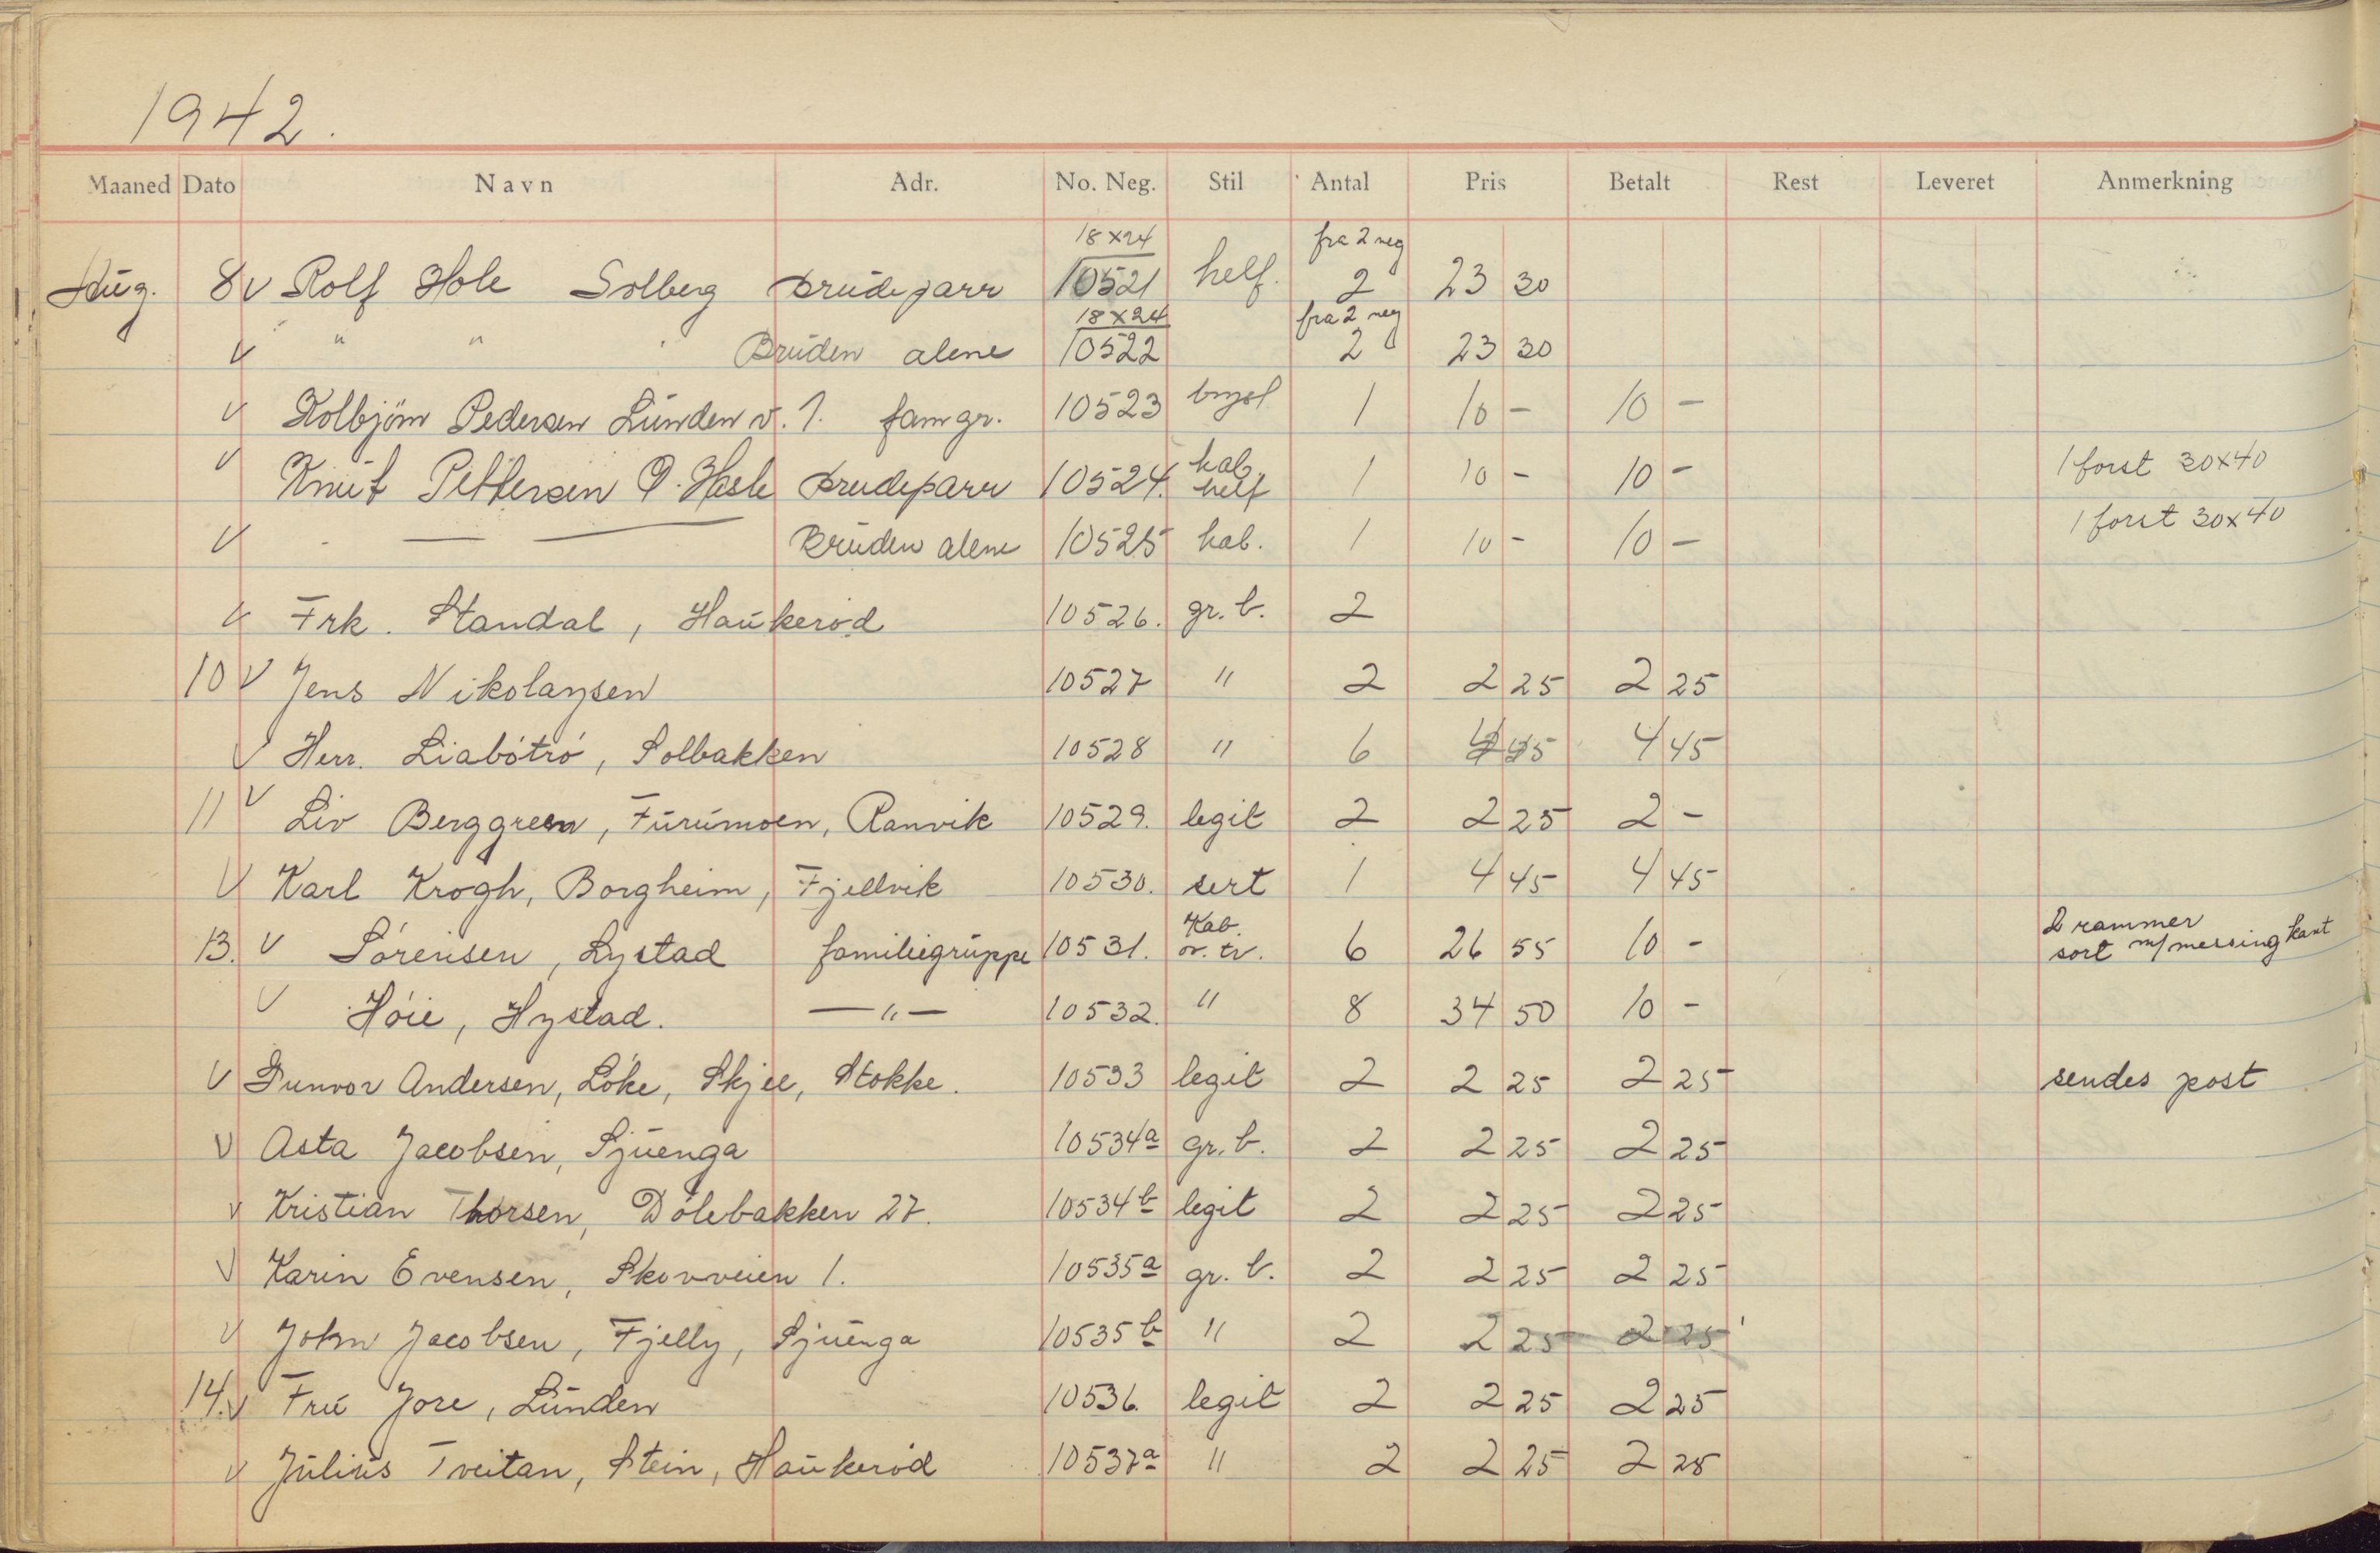 1942.
Maaned Dato Navn Adr. No. Neg. Stil Antal Pris Betalt Rest Leveret Anmerkning
18x24 fra 2 neg
Aug. 8 v Rolf Hole Solberg brudeparr 10521 helf. 2 23 30
18x24 fra 2 neg
v " " " Bruden alene 10522 2 23 30
v Kolbjörn Pedersen Lunden v. 1. famgr. 10523 1 10 - 10 -
v Knut Pettersen Ø. Hasle brudeparr 10524. kab. helf 1 10 - 10 - 1 forst 30x40
v - — — Bruden alene 10525 kab. 1 10 - 10 - 1 forst 30x40
v Frk. Standal, Haukeröd 10526. gr. b. 2
10 v Jens Nikolaysen 10527 " 2 2 25 2 25
v Herr. Liabötrö, Solbakken 10528 " 6 4 45 4 45
11 v Liv Berggreen, Furumoen, Ranvik 10529. legit 2 2 25 2 -
v Karl Krogh, Borgheim, Fjellvik 10530. sert 1 4 45 4 45
13. v Sörensen, Lystad familiegruppe 10531. Kab. 6 26 55 10 - 2 rammer sort m/messing kant
v Höie, Hystad. — " — 10532. " 8 34 50 10 -
v Gunvor Andersen, Löke, Skjee, Stokke. 10533 legit 2 2 25 2 25 sendes post
v Asta Jacobsen, Sjuenga 10534a gr. b. 2 2 25 2 25
v Kristian Thorsen, Dölebakken 27. 10534b legit 2 2 25 2 25
v Karin Evensen, Skovveien 1. 10535a gr. b. 2 2 25 2 25
v John Jacobsen, Fjelly, Sjuenga 10535b " 2 2 25 2 25
14. v Fru Jore, Lunden 10536. legit 2 2 25 2 25
v Julius Tveitan, Stein, Haukeröd 10537a " 2 2 25 2 25